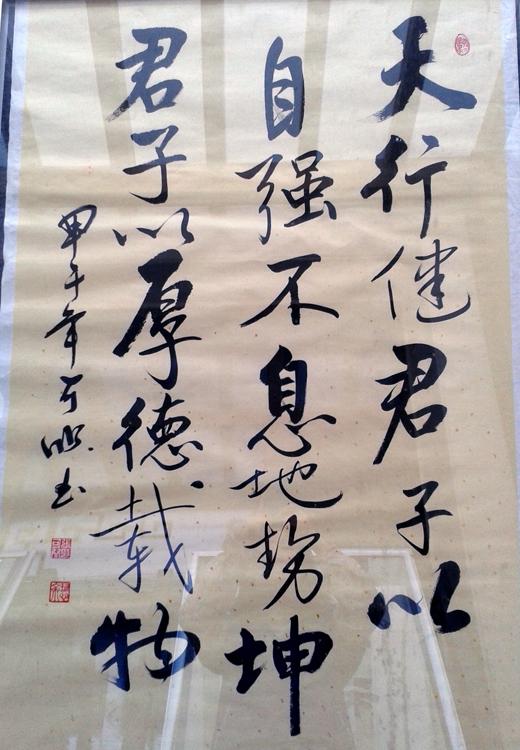 天行健君子以
自强不息地势坤
君子以厚德载物
甲午年书